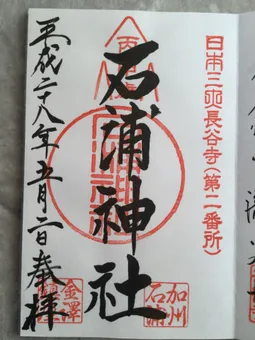 日本三大長谷寺(第二番所)
石浦神社
加州
石浦
平成二十八年五月二日奉拝
金澤